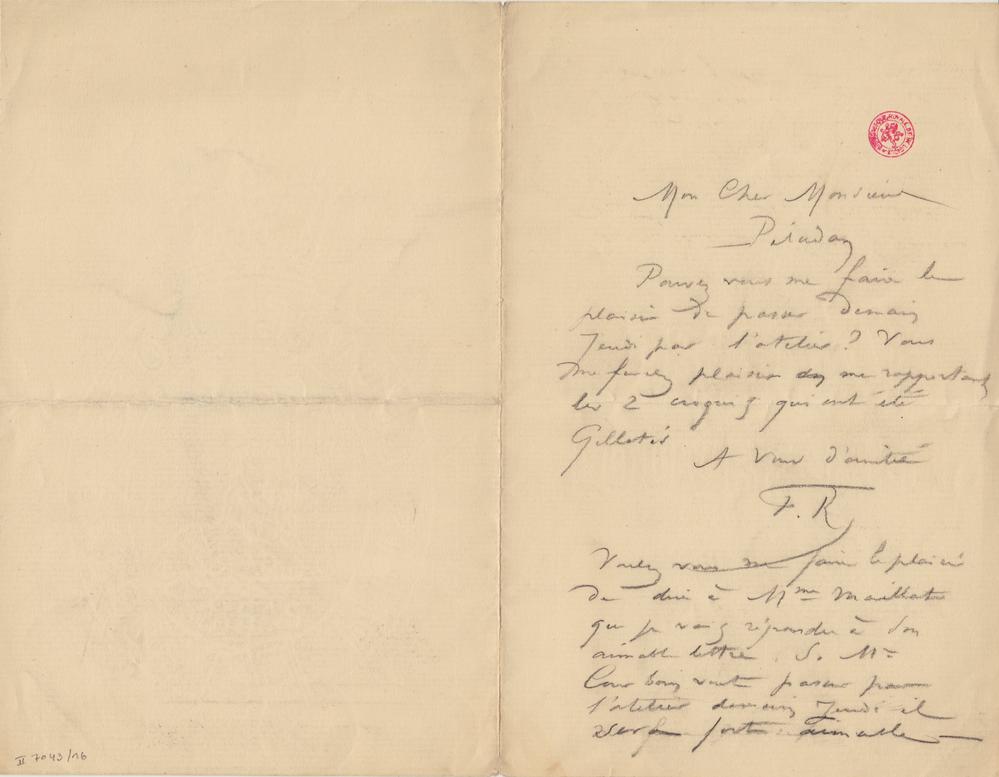 Mon Cher Monsieur
Péladan
Pouvez vous me faire le
plaisir de passer demain
Jeudi par l'atelier? Vous
me feriez plaisir en me rapportant
les 2 croquis qui ont été
Gillotés
A Vous d'amitié
F. R
Voulez vous me faire le plaisir
de dire à Mme
que je vais répondre à son
aimable lettre. Si Mr
veut passer par
l'atelier demain Jeudi il
sera fort aimable
II 7043/16